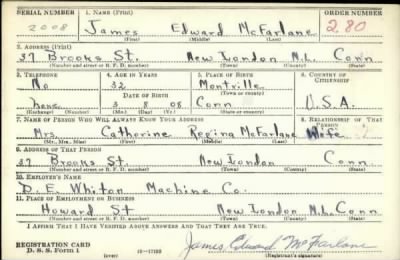 SERIAL NUMBER 1. NAME (Print) ORDER NUMBER
2008 James Edward McFarlane 280
(First) (Middle) (Last)
2. ADDRESS (Print)
37 Brooks St. New London N.L. Conn
(Number and street or R. F. D. number) (Town) (County) (State)
3. TELEPHONE 4. AGE IN YEARS 5. PLACE OF BIRTH 6. COUNTRY OF CITIZENSHIP
No 32 Montville
DATE OF BIRTH (Town or county)
None 3 8 08 Conn U.S.A.
(Exchange) (Number) (Mo.) (Day) (Yr.) (State or country)
7. NAME OF PERSON WHO WILL ALWAYS KNOW YOUR ADDRESS 8. RELATIONSHIP OF THAT PERSON
Mrs. Catherine Regina McFarlane Wife
(Mr., Mrs., Miss) (First) (Middle) (Last)
9. ADDRESS OF THAT PERSON
37 Brooks St. New London Conn
(Number and street or R. F. D. number) (Town) (County) (State)
10. EMPLOYER'S NAME
D. E. Whiton Machine Co.
11. PLACE OF EMPLOYMENT OR BUSINESS
Howard St New London N.L. Conn
(Number and street or R. F. D. number) (Town) (County) (State)
I AFFIRM THAT I HAVE VERIFIED ABOVE ANSWERS AND THAT THEY ARE TRUE.
REGISTRATION CARD
D. S. S. Form 1 (over) James Edward McFarlane
(Registrant's signature)